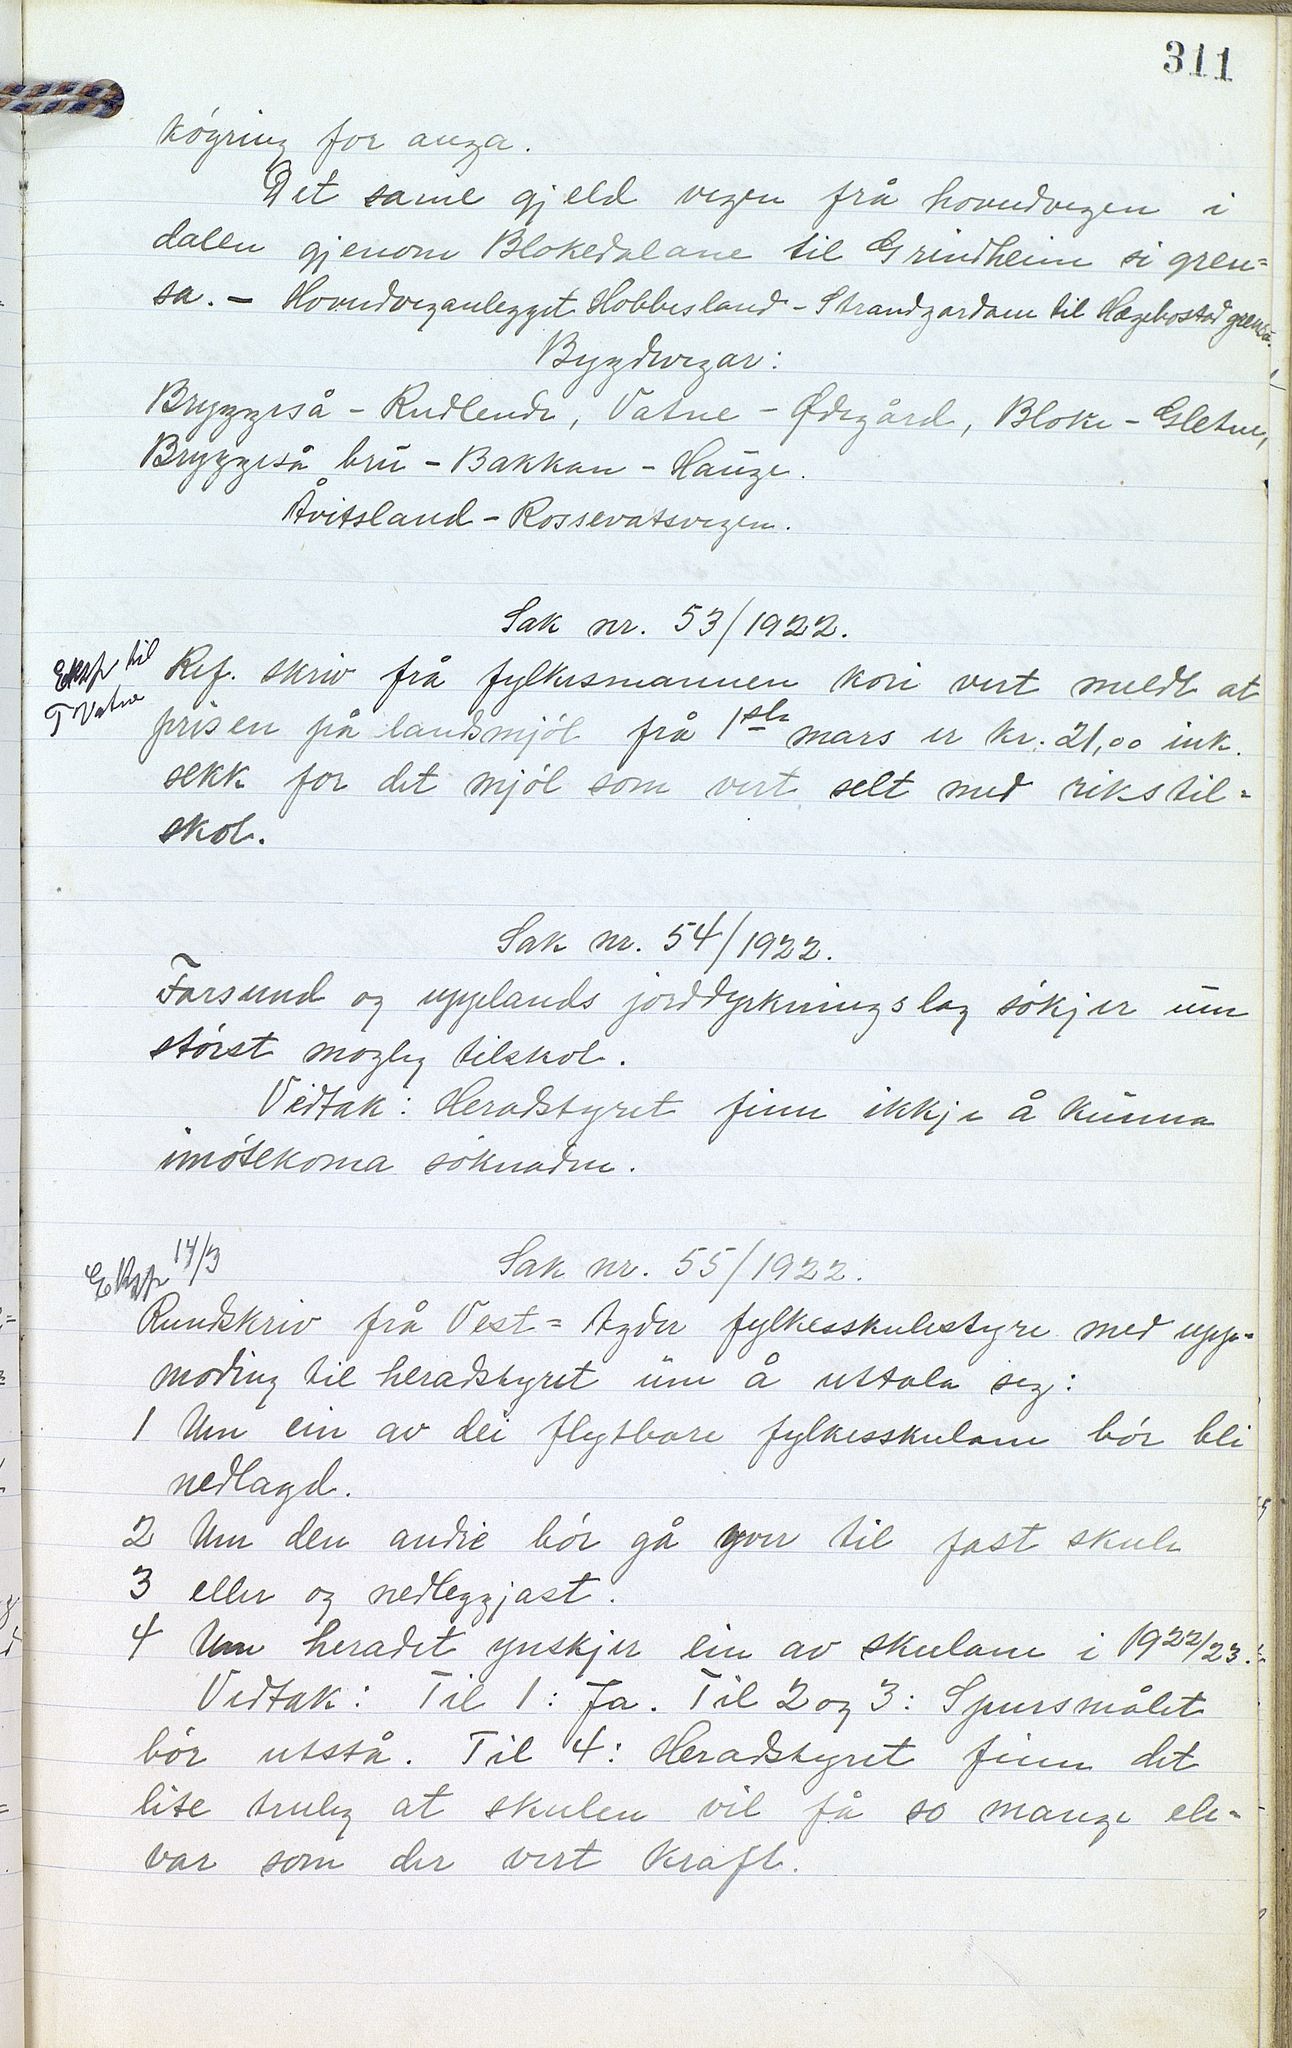 311
köyring for auga.
Det same gjeld vegen frå hovudvegen i
dalen gjenom Blokedalane til Grindheim si gren=
sa. - Hovudveganlegget Hobbesland - Strandgardane til Hægebostad grensa.
Bygdvegar:
Bryggeså - Rudlende, Vatne - Ødegård, Bloke - Gletne,
Bryggeså bru - Bakkan - Hauge.
Åvitsland - Rossevatsvegen.
Sak nr. 53/1922.
Eksp til
T Vatne
Ref. skriv frå fylkesmannen kori vert meldt at
prisen på landsmjöl frå 1ste mars er kr. 21,00 ink.
sekk for det mjöl som vert selt med rikstil=
skot.
Sak nr. 54/1922.
Farsund og upplands jorddyrkningslag sökjer um
störst mogleg tilskot.
Vedtak: Heradstyret finn ikkje å kunna
imötekoma söknaden.
Eksp 14/3
Sak nr. 55/1922.
Rundskriv frå Vest=Agder fylkesskulestyre med upp=
moding til heradstyret um å uttala seg:
1 Um ein av dei flytbare fylkesskulane bör bli
nedlagd.
2 Um den andre bör gå yver til fast skule
3 eller og nedleggjast.
4 Um heradet ynskjer ein av skulane i 1922/23.
Vedtak: Til 1: Ja. Til 2 og 3: Spursmålet
bör utstå. Til 4: Heradstyret finn det
lite truleg at skulen vil få so mange ele-
var som der vert kravt.